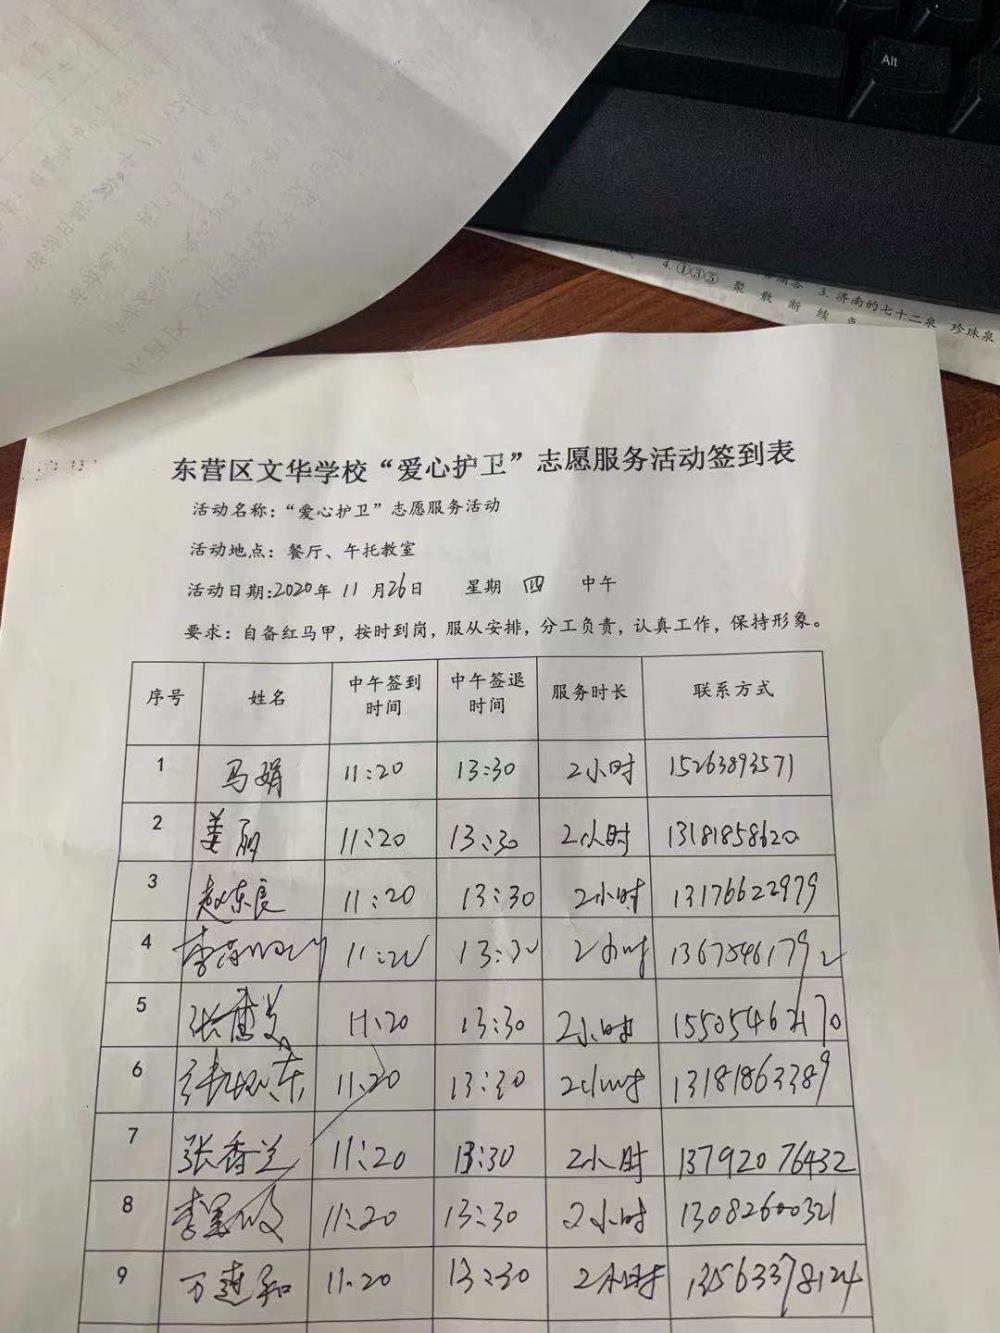 Alt
4.①③⑤ 聚 散 断 续
3.济南的七十二泉 珍珠泉
东营区文华学校“爱心护卫”志愿服务活动签到表
活动名称：“爱心护卫”志愿服务活动
活动地点：餐厅、午托教室
活动日期:2020年 11 月26日 星期 四 中午
要求：自备红马甲，按时到岗，服从安排，分工负责，认真工作，保持形象。
序号 姓名 中午签到时间 中午签退时间 服务时长 联系方式
1 马娟 11:20 13:30 2小时 15263893571
2 姜丽 11:20 13:30 2小时 13181858620
3 赵东良 11:20 13:30 2小时 13176622979
4 11:20 13:30 2小时 13675461792
5 11:20 13:30 2小时 15505462170
6 11:20 13:30 2小时 13181863389
7 张香兰 11:20 13:30 2小时 13792076432
8 11:20 13:30 2小时 13082600321
9 万连和 11:20 13:30 2小时 13563378124